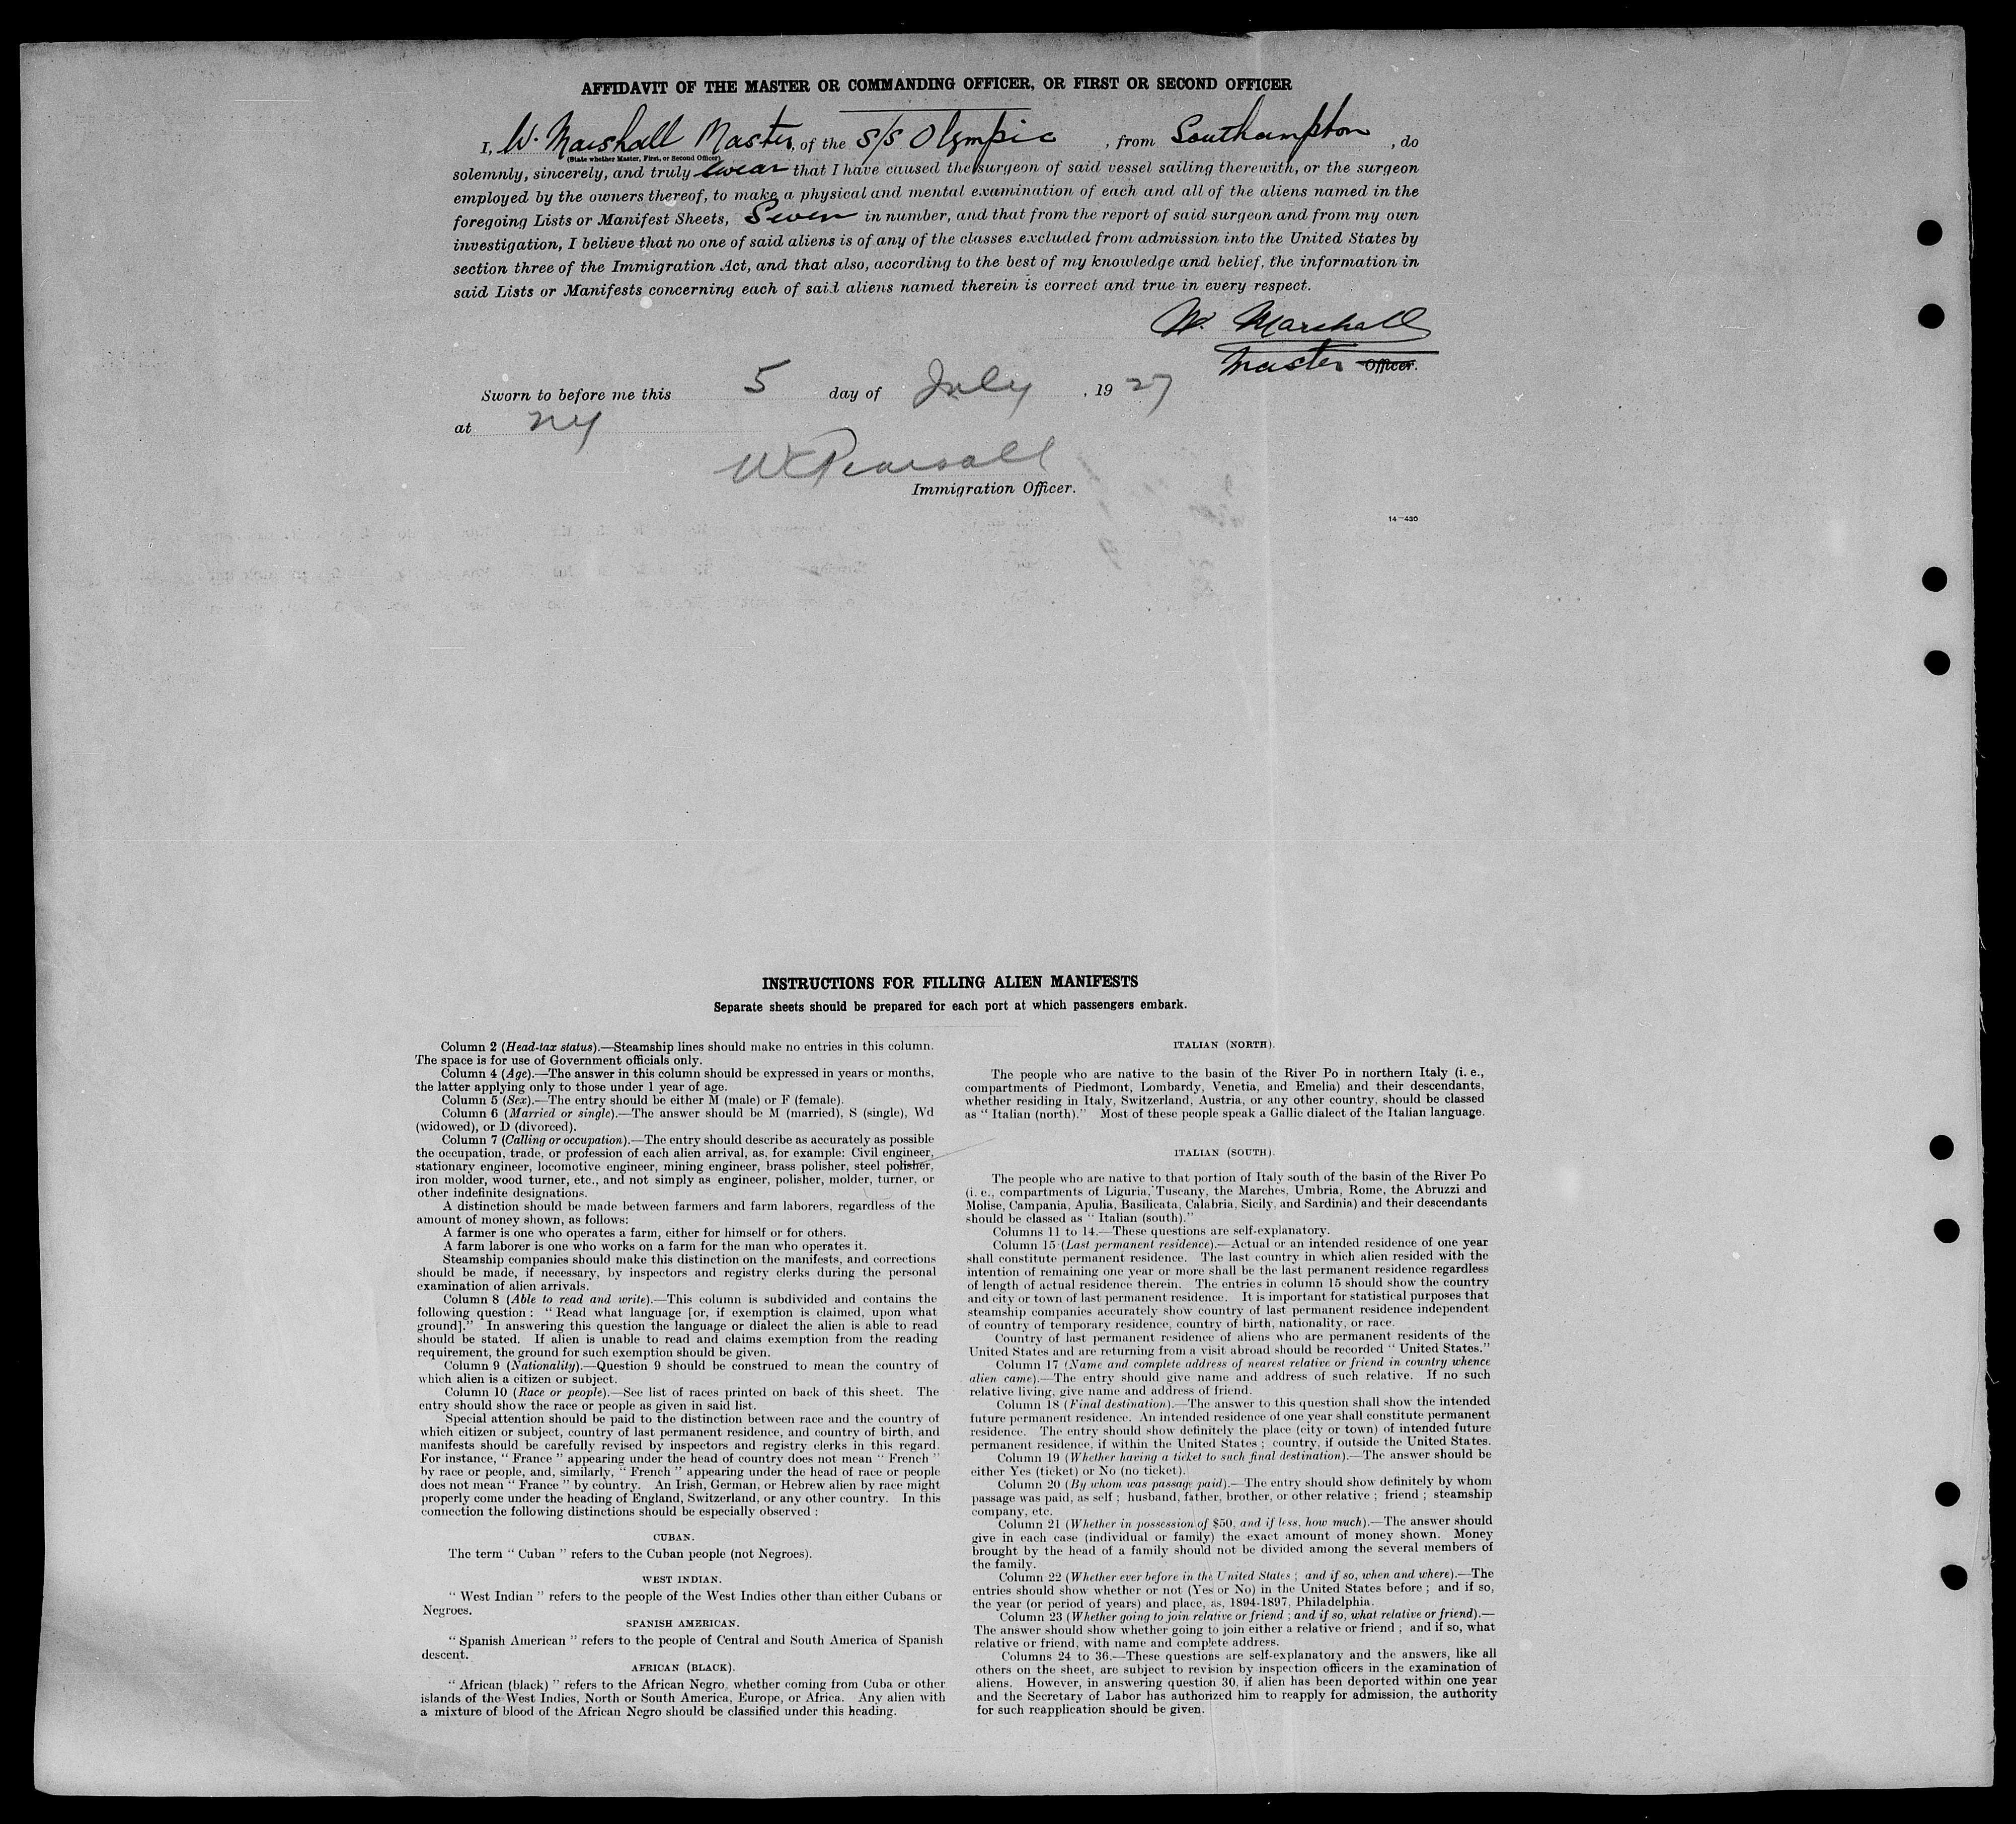 AFFIDAVIT OF THE MASTER OR COMMANDING OFFICER, OR FIRST OR SECOND OFFICER
I, W. Marshall Master, of the S/S Olympic, from Southampton, do
(State whether Master, First, or Second Officer)
solemnly, sincerely, and truly swear that I have caused the surgeon of said vessel sailing therewith, or the surgeon
employed by the owners thereof, to make a physical and mental examination of each and all of the aliens named in the
foregoing Lists or Manifest Sheets, Seven in number, and that from the report of said surgeon and from my own
investigation, I believe that no one of said aliens is of any of the classes excluded from admission into the United States by
section three of the Immigration Act, and that also, according to the best of my knowledge and belief, the information in
said Lists or Manifests concerning each of said aliens named therein is correct and true in every respect.
W. Marshall
Master Officer.
Sworn to before me this 5 day of July, 1927
at NY
W Pearsall
Immigration Officer.
14-430
INSTRUCTIONS FOR FILLING ALIEN MANIFESTS
Separate sheets should be prepared for each port at which passengers embark.
Column 2 (Head-tax status).—Steamship lines should make no entries in this column.
The space is for use of Government officials only.
Column 4 (Age).—The answer in this column should be expressed in years or months,
the latter applying only to those under 1 year of age.
Column 5 (Sex).—The entry should be either M (male) or F (female).
Column 6 (Married or single).—The answer should be M (married), S (single), Wd
(widowed), or D (divorced).
Column 7 (Calling or occupation).—The entry should describe as accurately as possible
the occupation, trade, or profession of each alien arrival, as, for example: Civil engineer,
stationary engineer, locomotive engineer, mining engineer, brass polisher, steel polisher,
iron molder, wood turner, etc., and not simply as engineer, polisher, molder, turner, or
other indefinite designations.
A distinction should be made between farmers and farm laborers, regardless of the
amount of money shown, as follows:
A farmer is one who operates a farm, either for himself or for others.
A farm laborer is one who works on a farm for the man who operates it.
Steamship companies should make this distinction on the manifests, and corrections
should be made, if necessary, by inspectors and registry clerks during the personal
examination of alien arrivals.
Column 8 (Able to read and write).—This column is subdivided and contains the
following question : “ Read what language [or, if exemption is claimed, upon what
ground].” In answering this question the language or dialect the alien is able to read
should be stated. If alien is unable to read and claims exemption from the reading
requirement, the ground for such exemption should be given.
Column 9 (Nationality).—Question 9 should be construed to mean the country of
which alien is a citizen or subject.
Column 10 (Race or people).—See list of races printed on back of this sheet. The
entry should show the race or people as given in said list.
Special attention should be paid to the distinction between race and the country of
which citizen or subject, country of last permanent residence, and country of birth, and
manifests should be carefully revised by inspectors and registry clerks in this regard.
For instance, “ France ” appearing under the head of country does not mean “ French ”
by race or people, and, similarly, “ French ” appearing under the head of race or people
does not mean “ France ” by country. An Irish, German, or Hebrew alien by race might
properly come under the heading of England, Switzerland, or any other country. In this
connection the following distinctions should be especially observed :
CUBAN.
The term “ Cuban ” refers to the Cuban people (not Negroes).
WEST INDIAN.
“ West Indian ” refers to the people of the West Indies other than either Cubans or
Negroes.
SPANISH AMERICAN.
“ Spanish American ” refers to the people of Central and South America of Spanish
descent.
AFRICAN (BLACK).
“ African (black) ” refers to the African Negro, whether coming from Cuba or other
islands of the West Indies, North or South America, Europe, or Africa. Any alien with
a mixture of blood of the African Negro should be classified under this heading.
ITALIAN (NORTH).
The people who are native to the basin of the River Po in northern Italy (i. e.,
compartments of Piedmont, Lombardy, Venetia, and Emelia) and their descendants,
whether residing in Italy, Switzerland, Austria, or any other country, should be classed
as “ Italian (north).” Most of these people speak a Gallic dialect of the Italian language.
ITALIAN (SOUTH).
The people who are native to that portion of Italy south of the basin of the River Po
(i. e., compartments of Liguria, Tuscany, the Marches, Umbria, Rome, the Abruzzi and
Molise, Campania, Apulia, Basilicata, Calabria, Sicily, and Sardinia) and their descendants
should be classed as “ Italian (south).”
Columns 11 to 14.—These questions are self-explanatory.
Column 15 (Last permanent residence).—Actual or an intended residence of one year
shall constitute permanent residence. The last country in which alien resided with the
intention of remaining one year or more shall be the last permanent residence regardless
of length of actual residence therein. The entries in column 15 should show the country
and city or town of last permanent residence. It is important for statistical purposes that
steamship companies accurately show country of last permanent residence independent
of country of temporary residence, country of birth, nationality, or race.
Country of last permanent residence of aliens who are permanent residents of the
United States and are returning from a visit abroad should be recorded “ United States.”
Column 17 (Name and complete address of nearest relative or friend in country whence
alien came).—The entry should give name and address of such relative. If no such
relative living, give name and address of friend.
Column 18 (Final destination).—The answer to this question shall show the intended
future permanent residence. An intended residence of one year shall constitute permanent
residence. The entry should show definitely the place (city or town) of intended future
permanent residence, if within the United States ; country, if outside the United States.
Column 19 (Whether having a ticket to such final destination).—The answer should be
either Yes (ticket) or No (no ticket).
Column 20 (By whom was passage paid).—The entry should show definitely by whom
passage was paid, as self ; husband, father, brother, or other relative ; friend ; steamship
company, etc.
Column 21 (Whether in possession of $50, and if less, how much).—The answer should
give in each case (individual or family) the exact amount of money shown. Money
brought by the head of a family should not be divided among the several members of
the family.
Column 22 (Whether ever before in the United States ; and if so, when and where).—The
entries should show whether or not (Yes or No) in the United States before ; and if so,
the year (or period of years) and place, as, 1894-1897, Philadelphia.
Column 23 (Whether going to join relative or friend ; and if so, what relative or friend).—
The answer should show whether going to join either a relative or friend ; and if so, what
relative or friend, with name and complete address.
Columns 24 to 36.—These questions are self-explanatory and the answers, like all
others on the sheet, are subject to revision by inspection officers in the examination of
aliens. However, in answering question 30, if alien has been deported within one year
and the Secretary of Labor has authorized him to reapply for admission, the authority
for such reapplication should be given.